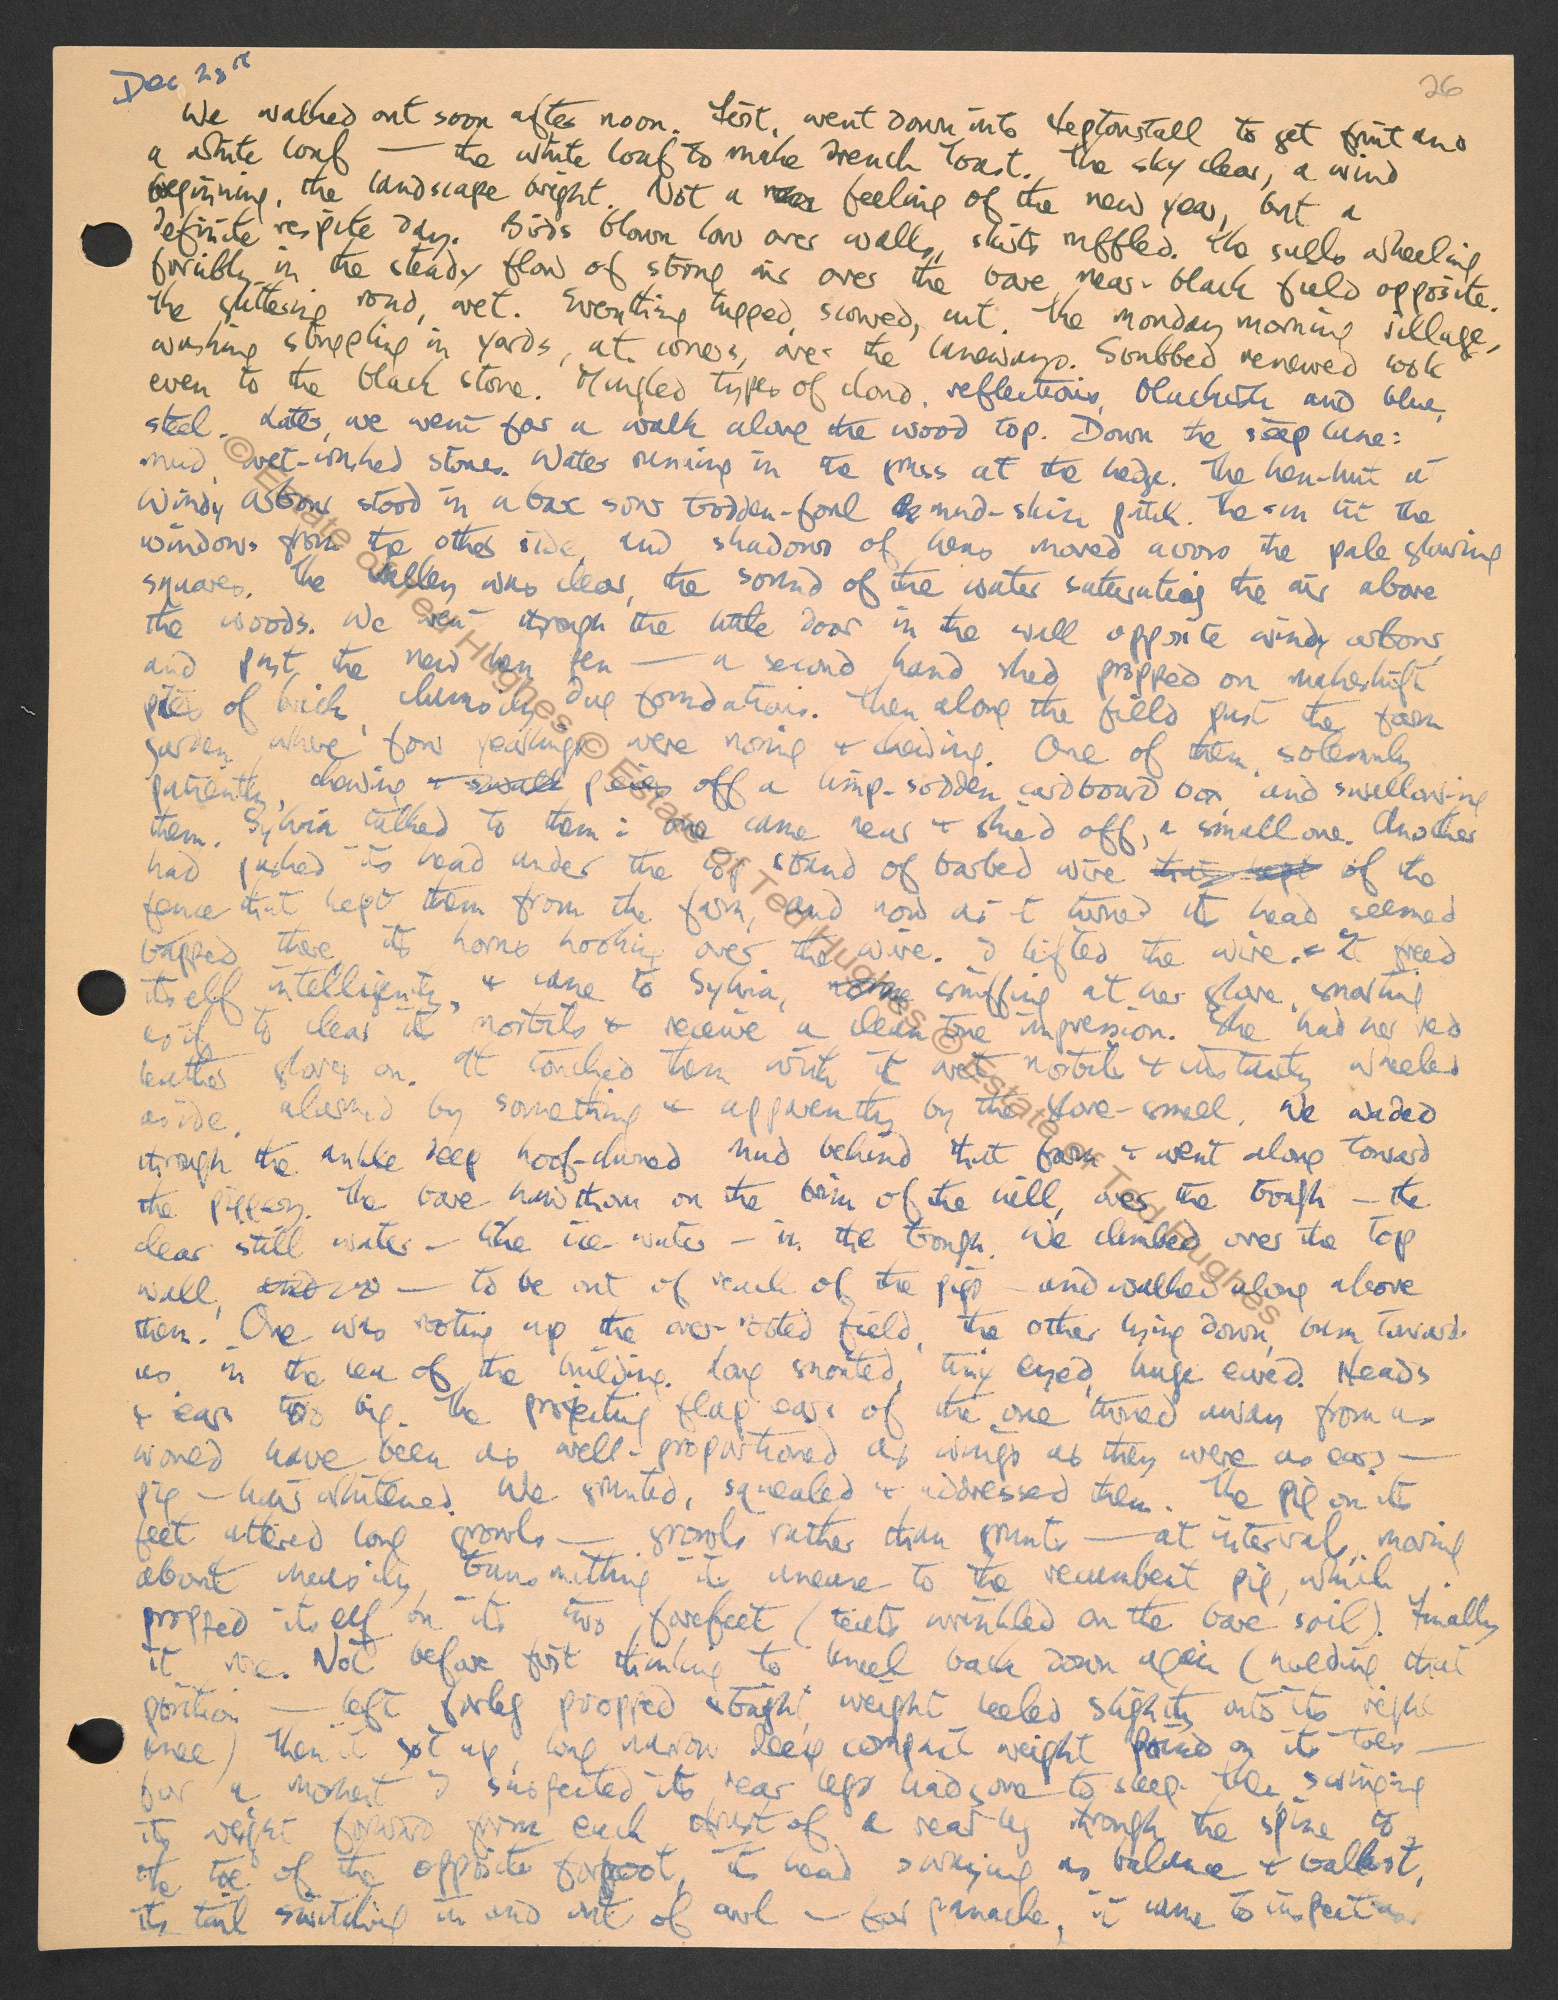 Dec 28th
26
We walked out soon after noon. First, went down into Heptonstall to get fruit and
a white loaf — the white loaf to make French toast. The sky clear, a wind
beginning, the landscape bright. Not a feeling of the new year, but a
definite respite day. Birds blown low over walls, skirts ruffled. The gulls wheeling
forcibly in the steady flow of strong air over the bare near-black field opposite.
The glittering road, wet. Everything tugged, scoured, cut. The monday morning village,
washing struggling in yards, at corners, over the laneways. Scrubbed renewed look
even to the black stone. Mingled types of cloud, reflections, blackish and blue,
steel. Later, we went for a walk along the wood top. Down the steep lane:
mud, wet-washed stones. Water running in the grass at the hedge. The hen-hut at
windy arbour stood in a bare sour trodden-foul mud-skin patch. The sun lit the
windows from the other side and shadows of hens moved across the pale glowing
squares. The valley was clear, the sound of the water saturating the air above
the woods. We went through the little door in the wall opposite windy arbour,
and past the new hen pen — a second hand shed propped on makeshift
piles of brick, clumsily dug foundations. Then along the field past the farm
garden, where four yearlings were nosing + chewing. One of them, solemnly
patiently, chewing + small pieces off a limp-sodden cardboard box, and swallowing
them. Sylvia talked to them: one came near + shied off, a small one. Another
had pushed its head under the top strand of barbed wire that kept of the
fence that kept them from the farm, and now as it turned its head seemed
trapped there, its horns hooking over the wire. I lifted the wire. + it freed
itself intelligently, + came to Sylvia, sniffing at her glove, snorting
as if to clear its nostrils + receive a clean true impression. She had her red
leather gloves on. It touched them with its wet nostrils + instantly wheeled
aside, alarmed by something + apparently by the glove-smell. We waded
through the ankle deep hoof-churned mud behind that farm + went along toward
the piggery. The bare hawthorn on the brim of the hill, over the trough — the
clear still water — like ice-water — in the trough. We climbed over the top
wall, — to be out of reach of the pigs — and walked along above
them. One was rooting up the over-rooted field, the other lying down, bum toward
us, in the lea of the building. Long snouted, tiny eyed, huge eared. Heads
+ ears too big. The projecting flap ears of the one turned away from us
would have been as well-proportioned as wings as they were as ears —
pig-hair whitened. We grunted, squealed + addressed them. The pig on its
feet uttered long growls — growls rather than grunts — at intervals, moving
about uneasily, transmitting its unease to the recumbent pig, which
propped itself on its two forefeet (teats wrinkled on the bare soil). Finally
it rose. Not before first thinking to kneel back down again (holding that
position — left foreleg propped straight, weight keeled slightly onto its right
knee) then it sat up, long narrow deep compact weight poised on its toes —
for a moment I suspected its rear legs had gone to sleep. Then, swinging
its weight forward from each thrust of a rear leg through the spine to
the toe of the opposite forefoot, its head swaying as balance + ballast,
its tail switching in and out of curl — for panache, it came to inspect us.
© Estate of Ted Hughes © Estate of Ted Hughes © Estate of Ted Hughes